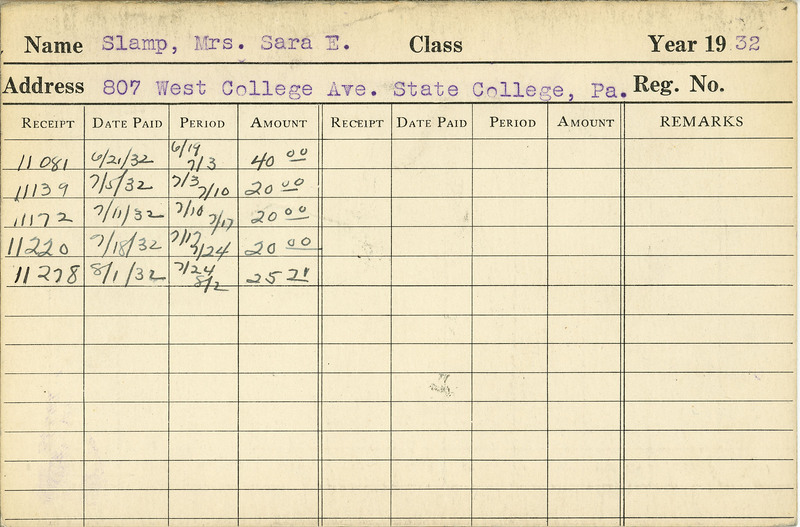 Name Slamp, Mrs. Sara E. Class Year 1932
Address 807 West College Ave. State College, Pa. Reg. No.
RECEIPT DATE PAID PERIOD AMOUNT RECEIPT DATE PAID PERIOD AMOUNT REMARKS
11081 6/21/32 6/19 7/3 40 00
11139 7/5/32 7/3 7/10 20 00
11172 7/11/32 7/10 7/17 20 00
11220 7/18/32 7/17 7/24 20 00
11278 8/1/32 7/24 8/2 25 71